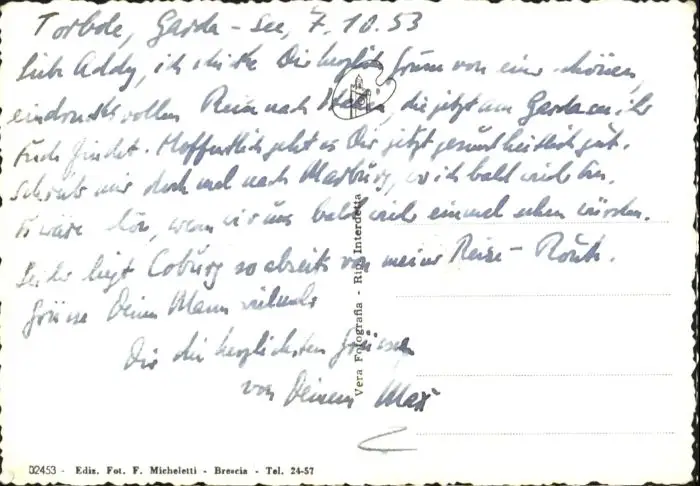 Torbole, Garda-See, 7.10.53
Liebe Addy, ich schicke Dir herzlich Grüsse von einer schönen,
eindrucksvollen Reise nach Italien, die jetzt am Gardasee ihr
Ende findet. Hoffentlich geht es Dir jetzt gesundheitlich gut.
Schreib mir doch mal nach Marburg, wo ich bald wieder bin.
Es wäre schön, wenn wir uns bald wieder einmal sehen würden.
Leider liegt Coburg so abseits von meiner Reise-Route.
Grüsse Deinen Mann vielmals
Dir die herzlichsten Grüsse
von Deinem Max
Vera Fotografia - Rip. Interdetta
02453 - Ediz. Fot. F. Micheletti - Brescia - Tel. 24-57